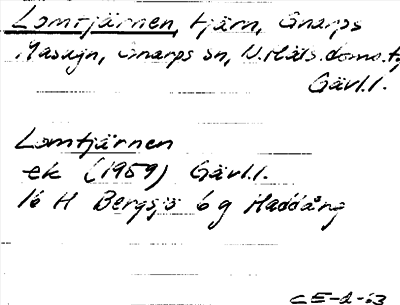 Lomtjärnen, tjärn, Gnarps
Masugn, Gnarps sn, N.Häls.doms.tg
Gävl.l.
Lomtjärnen
ek (1959) Gävl.l.
16 H Bergsjö 6 g
CE-2-63